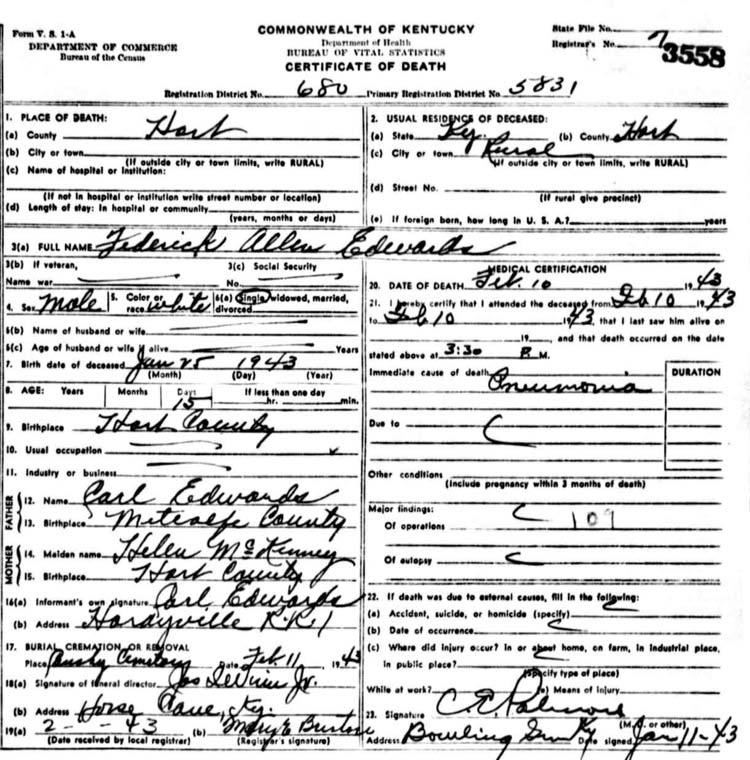 Form V. S. 1-A
DEPARTMENT OF COMMERCE
Bureau of the Census
COMMONWEALTH OF KENTUCKY
Department of Health
BUREAU OF VITAL STATISTICS
CERTIFICATE OF DEATH
State File No.
Registrar's No. 7
3558
Registration District No. 680 Primary Registration District No. 5831
1. PLACE OF DEATH:
(a) County Hart
(b) City or town
(If outside city or town limits, write RURAL)
(c) Name of hospital or institution:
(If not in hospital or institution write street number or location)
(d) Length of stay: In hospital or community
(years, months or days)
2. USUAL RESIDENCE OF DECEASED:
(a) State Ky. (b) County Hart
(c) City or town Rural
(If outside city or town limits, write RURAL)
(d) Street No.
(If rural give precinct)
(e) If foreign born, how long in U. S. A.? years
3(a) FULL NAME Federick Allen Edwards
3(b) If veteran,
Name war
3(c) Social Security
No.
4. Sex Male 5. Color or race white 6(a) Single, widowed, married, divorced
6(b) Name of husband or wife
6(c) Age of husband or wife if alive Years
7. Birth date of deceased Jan 25 1943
(Month) (Day) (Year)
8. AGE: Years Months Days If less than one day
15 hr. min.
9. Birthplace Hart County
10. Usual occupation
11. Industry or business
FATHER
12. Name Carl Edwards
13. Birthplace Metcalfe County
MOTHER
14. Maiden name Helen McKinney
15. Birthplace Hart County
16(a) Informant's own signature Carl Edwards
(b) Address Hardyville R.R. 1
17. BURIAL, CREMATION, OR REMOVAL
Place Cemetery Date Feb. 11 1943
18(a) Signature of funeral director Jr.
(b) Address Horse Cave, Ky.
19(a) 2- -43 (b) Mary E
(Date received by local registrar) (Registrar's signature)
MEDICAL CERTIFICATION
20. DATE OF DEATH Feb. 10 1943
21. I hereby certify that I attended the deceased from Feb 10 1943
to Feb 10 1943, that I last saw him alive on
19 and that death occurred on the date
stated above at 3:30 P. M.
Immediate cause of death Pneumonia
DURATION
Due to
Other conditions
(Include pregnancy within 3 months of death)
Major findings:
Of operations 109
Of autopsy
22. If death was due to external causes, fill in the following:
(a) Accident, suicide, or homicide (specify)
(b) Date of occurrence
(c) Where did injury occur? In or about home, on farm, in industrial place,
in public place?
(Specify type of place)
While at work? (e) Means of injury
23. Signature C. E.
(M.D. or other)
Address Bowling Ky Date signed Jan 11-43